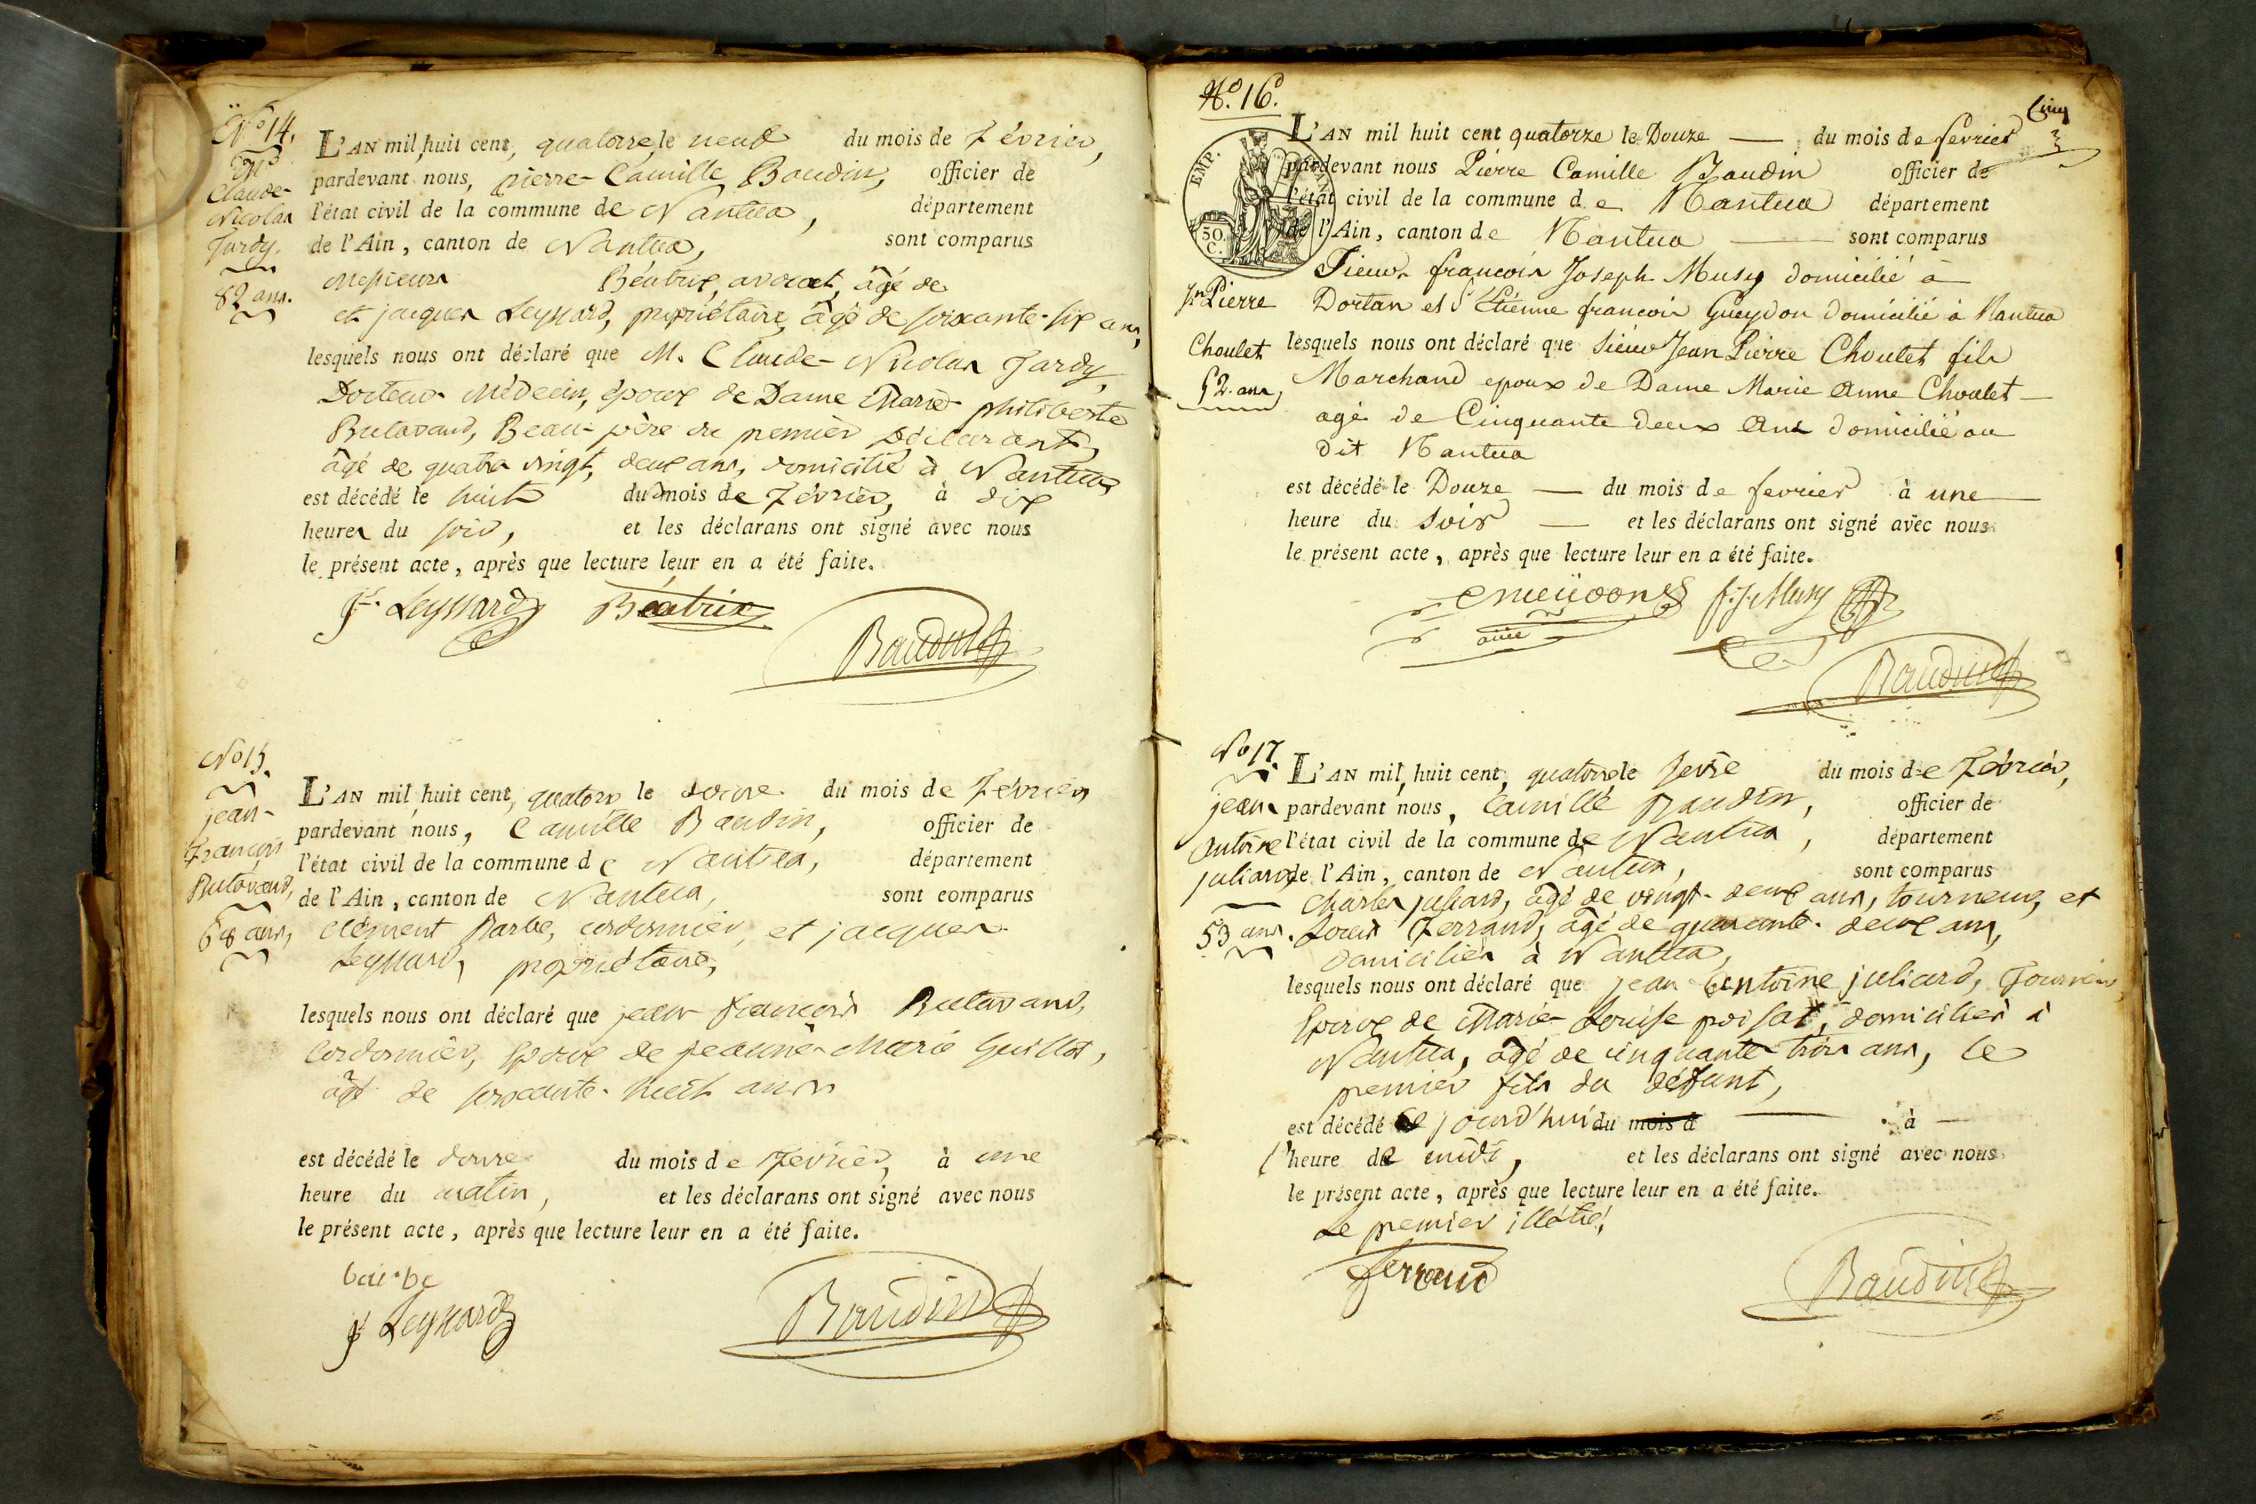 N.º 14.
Mr
Claude-
Nicolas
Jardy.
82 ans.
L'AN mil huit cent, quatorze, le neuf du mois de Février,
pardevant nous, pierre-Camille Baudin, officier de
l'état civil de la commune de Nantua, département
de l'Ain, canton de Nantua, sont comparus
Messieurs Béatrix, avocat, âgé de
et jacques Leyssard, propriétaire, âgé de soixante-six ans,
lesquels nous ont déclaré que M. Claude-Nicolas Jardy,
Docteur Médecin, époux de Dame Marie philiberte
Butavand, Beau-père du premier déclarant,
âgé de quatre vingt, deux ans, domicilié à Nantua
est décédé le huit du mois de Février, à dix
heures du soir, et les déclarans ont signé avec nous
le présent acte, après que lecture leur en a été faite.
Jq. Leyssard Béatrix
Baudin
No 15.
jean-
François
Butavand,
68 ans,
L'AN mil huit cent, quatorze le douze du mois de Février,
pardevant nous, Camille Baudin, officier de
l'état civil de la commune de Nantua, département
de l'Ain, canton de Nantua, sont comparus
clément Barbe, cordonnier, et jacques
Leyssard, propriétaire,
lesquels nous ont déclaré que jean françois Butavand,
Cordonnier, Epoux de jeanne-Marie Guillot,
âgé de soixante-huit ans
est décédé le douze du mois de Février, à une
heure du matin, et les déclarans ont signé avec nous
le présent acte, après que lecture leur en a été faite.
barbe
Jq Leyssard
Baudin
Nº. 16.
Cinq
EMP.
50.
C.
L'AN mil huit cent quatorze le Douze — du mois de fevrier
pardevant nous Pierre Camille Baudin officier de
l'état civil de la commune de Nantua département
de l'Ain, canton de Nantua — sont comparus
Sieurs françois Joseph Musy domicilié à
Dortan et Sr Etienne françois Gueydon domicilié à Nantua
Jn Pierre
Choulet
52. ans
lesquels nous ont déclaré que Sieur Jean Pierre Choulet fils
Marchand epoux de Dame Marie Anne Choulet —
agé de Cinquante deux Ans domicilié au
dit Nantua
est décédé le Douze — du mois de fevrier à une —
heure du soir — et les déclarans ont signé avec nous
le présent acte, après que lecture leur en a été faite.
f. J. Musy
Baudin
No 17.
jean
antoine
juliard,
53 ans.
L'AN mil, huit cent, quatorze, le seize du mois de Février,
pardevant nous, Camille Baudin, officier de
l'état civil de la commune de Nantua, département
de l'Ain, canton de Nantua, sont comparus
Charles juliard, âgé de vingt-deux ans, tourneur, et
Louis Ferrand, âgé de quarante-deux ans,
domiciliés à Nantua,
lesquels nous ont déclaré que jean antoine juliard, Tourneur,
Epoux de Marie-Louise poisat, domiciliés à
Nantua, âgé de cinquante-trois ans, le
premier fils du défunt,
est décédé ce jourd'hui du mois d — à —
l'heure de midi, et les déclarans ont signé avec nous
le présent acte, après que lecture leur en a été faite.
Le premier illétré,
ferrand
Baudin